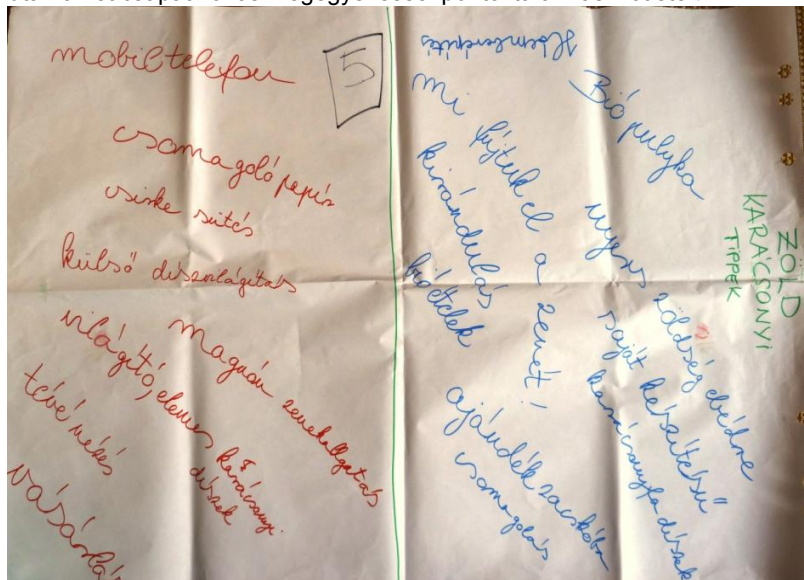 mobiltelefon
5
csomagoló papír
csirke sütés
külső díszvilágítás
magnón zenehallgatás
világító, elemes karácsonyi
díszek
tévé nézés
vásárlás
Hóemberépítés
Bio pulyka
mi fújtuk el a zenét!
kirándulás
bioételek
nyers zöldség ebédre
saját készítésű
karácsonyfadíszek
ajándék zacskóba
csomagolás
ZÖLD
KARÁCSONYI
TIPPEK